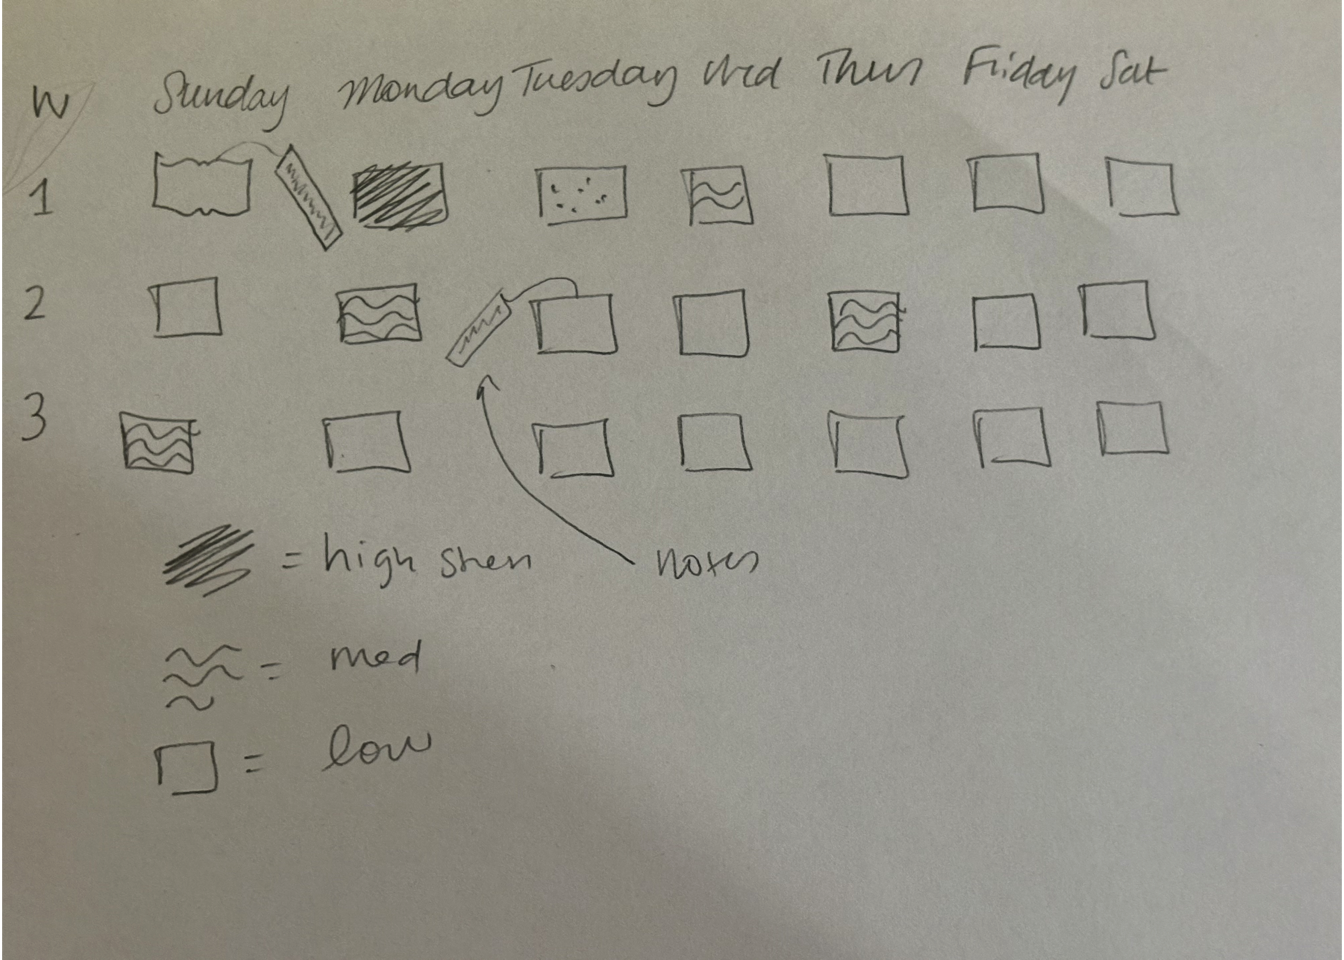 W Sunday Monday Tuesday Wed Thurs Friday Sat
1
2
3
= high stress
notes
= med
= low